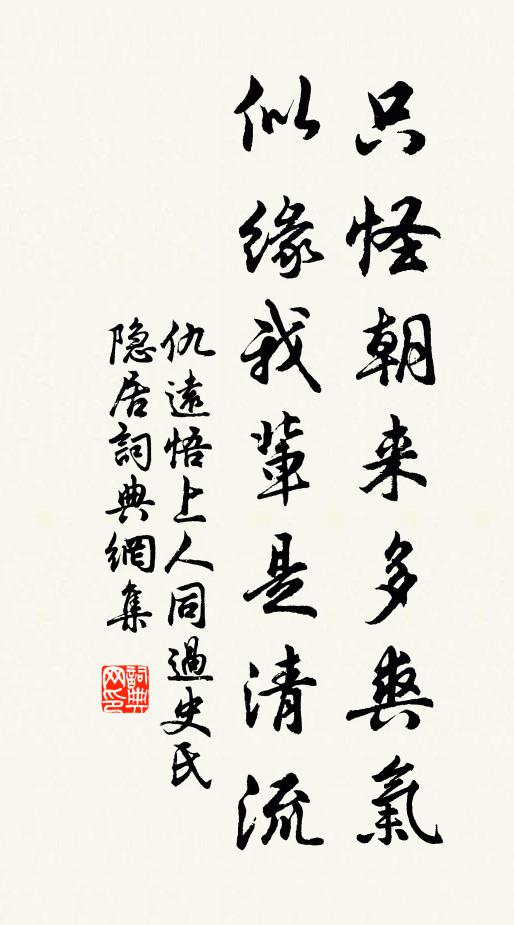 只怪朝来多爽氣
似缘我輩是清流
仇遠悟上人同過史氏
隐居詞典網集
詞典网印